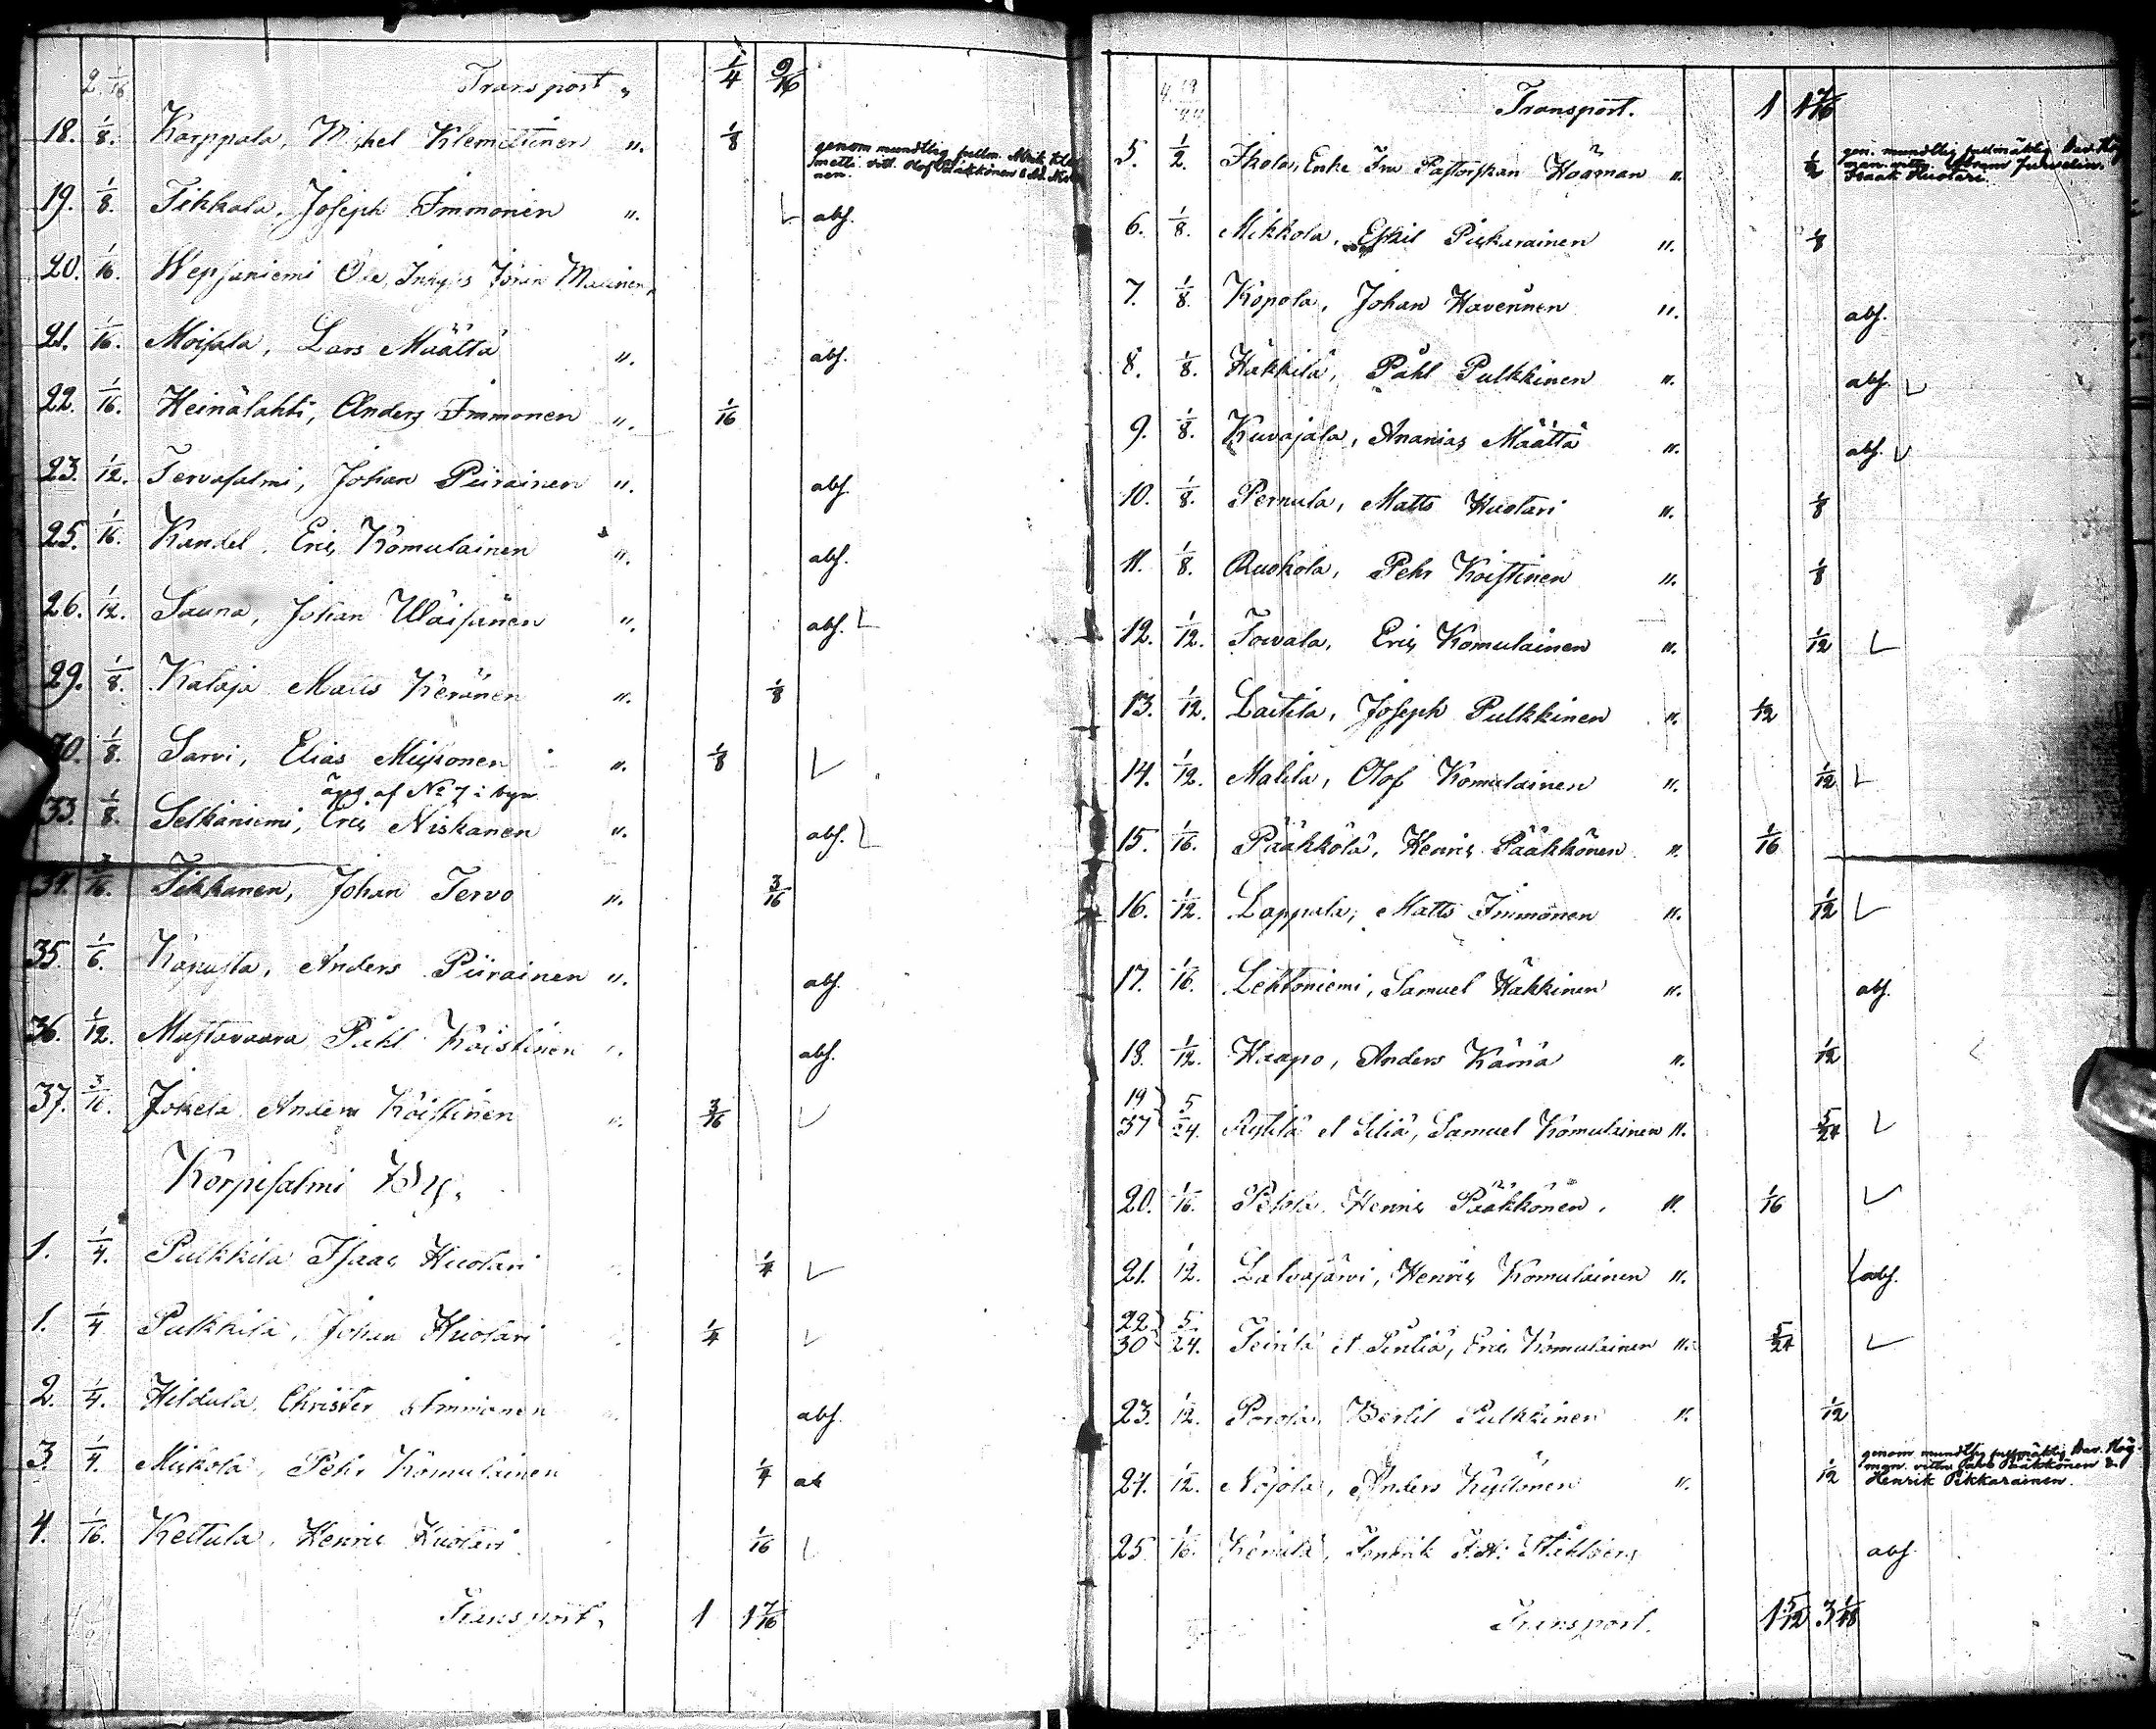 2 1/16 Transport " 1/4 9/16
18. 1/8. Karppala, Michel Klemettinen ". 1/8 genom mundtlig fullm.
19. 1/8. Tikkala, Joseph Immonen ". abs.
20. 1/16. Wepsäniemi Öde,
21. 1/16. Moisala, Lars Määttä ". abs.
22. 1/16. Heinälahti, Anders Immonen ". 1/16
23. 1/12. Tervasalmi, Johan Piirainen ". abs.
25. 1/16. Kandel. Eric Komulainen ". abs.
26. 1/12. Sauna, Johan Wäisänen ". abs.
29. 1/8. Kataja Matts Keränen ". 1/8
30. 1/8. Sarvi, Elias ". 1/8
äga af No 7 i byn
33. 1/8. Selkäniemi, Eric Niskanen ". abs.
34. 3/16. Tikkanen, Johan Tervo ". 3/16
35. 1/6. Kanusta, Anders Piirainen ". abs.
36. 1/12. Mustavaara Påhl Koistinen ". abs.
37. 3/16. Jokela Anders Koistinen ". 3/16
Korpisalmi By.
1. 1/4. Pulkkila Isaac Huotari 1/4
1. 1/4 Pulkkila, Johan Huotari 1/4
2. 1/4. Hildula. Christer Immonen abs.
3. 1/4. Miskola, Pehr Komulainen 1/4 ab
4. 1/16. Kettula, Henric Huotari. 1/16
Transport, 1 1 7/16
Transport. 1 1 7/16
5. 1/2. Ihola, Enke Fru Pastorskan Hoffman ". 1/2 gen. mundtlig fullmäktig
Isaak Huotari.
6. 1/8. Mikkola, Eskil Pickarainen ". 1/8
7. 1/8. Kopola, Johan Haverinen ". abs.
8. 1/8. Häkkilä, Påhl Pulkkinen ". abs.
9. 1/8. Kuvajala, Ananias Määttä ". abs.
10. 1/8. Pernula, Matts Huotari ". 1/8
11. 1/8. Ruokola, Pehr Koistinen ". 1/8
12. 1/12. Towala, Eric Komulainen ". 1/12
13. 1/12. Laitila, Joseph Pulkkinen ". 1/12
14. 1/12. Malila, Olof Komulainen ". 1/12
15. 1/16. Pääkkölä, Henric Pääkkönen ". 1/16
16. 1/12. Lappala, Matts Immonen ". 1/12
17. 1/16. Lehtoniemi, Samuel Häkkinen ". abs.
18. 1/12. Haapo, Anders Kämä ". 1/12
19} 5
37 24. Rytilä et Siliä, Samuel Komulainen ". 5/24
20. 1/16. Pekka. Henric Pääkkönen. ". 1/16
21. 1/12. Latvajärvi, Henric Komulainen ". abs.
22} 5
30 24. Teirilä et Pintiä, Eric Komulainen ". 5/24
23. 1/12. Porola, Bertil Pulkkinen ". 1/12
24. 1/12. Nojola, Anders Kyllönen ". 1/12 genom mundtlig fullmäktig
Henrik Pikkarainen.
25. 1/16. Kerälä, Ståhlberg abs.
Transport. 1 5/12 3 1/48